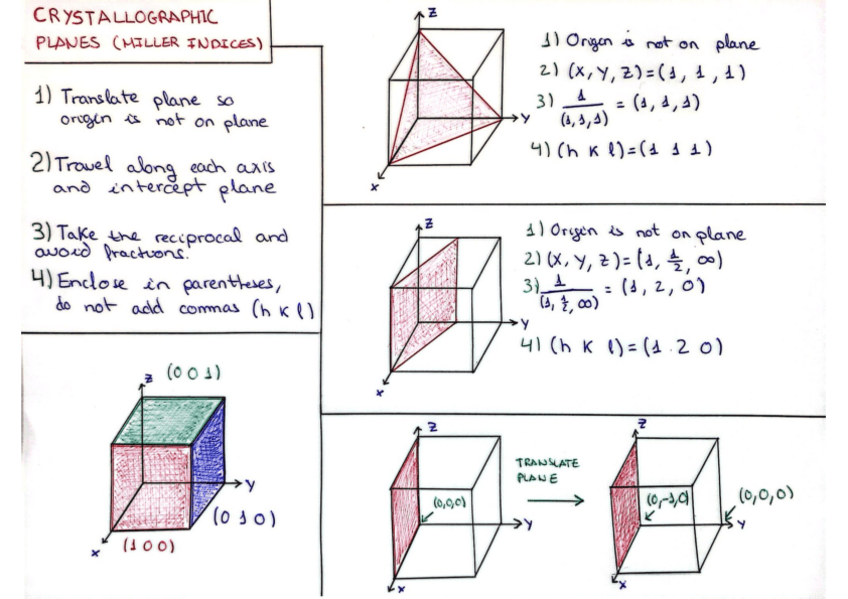 CRYSTALLOGRAPHIC
PLANES (MILLER INDICES)
1) Translate plane so
origin is not on plane
2) Travel along each axis
and intercept plane
3) Take the reciprocal and
avoid fractions.
4) Enclose in parentheses,
do not add commas (h k l)
Z (0 0 1)
Y
(0 1 0)
X
(1 0 0)
Z
Y
X
1) Origin is not on plane
2) (X, Y, Z) = (1, 1, 1)
3) 1/(1,1,1) = (1, 1, 1)
4) (h k l) = (1 1 1)
Z
Y
X
1) Origin is not on plane
2) (X, Y, Z) = (1, 1/2, ∞)
3) 1/(1, 1/2, ∞) = (1, 2, 0)
4) (h k l) = (1 2 0)
Z
(0,0,0)
Y
X
TRANSLATE
PLANE
Z
(0,-1,0)
(0,0,0)
Y
X